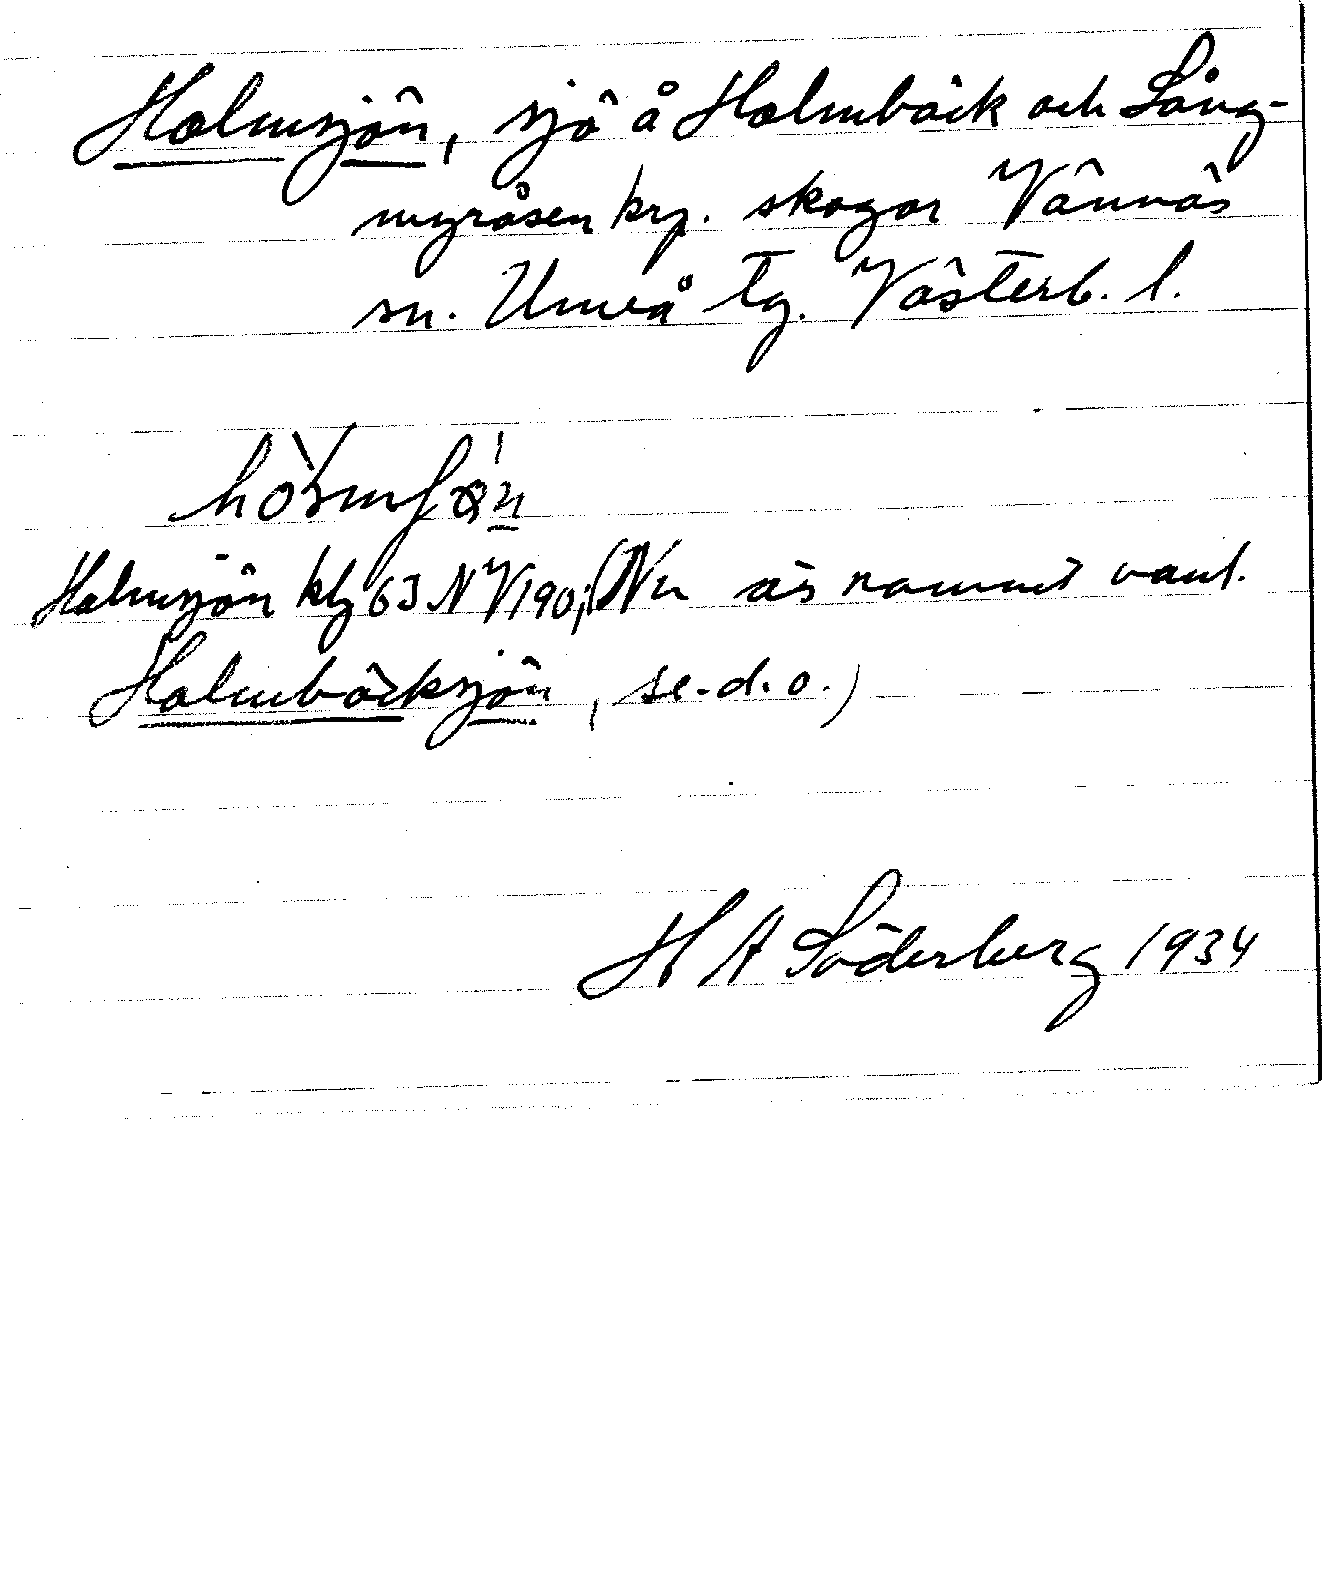 Holmsjön, sjö å Holmbäck och Lång-
myråsen krp. skogar Vännäs
sn. Umeå tg. Västerb. l.
Holmsjön kbl 63 NV 190; (Nu är namnet vanl.
Holmbäcksjön, se. d. o.)
H A Söderberg 1934